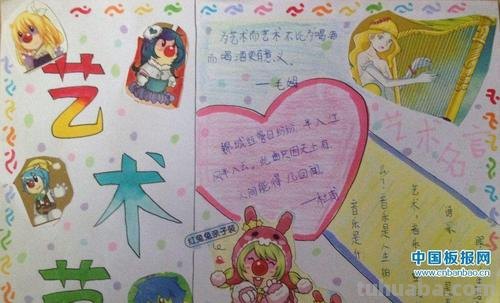 艺
术
节
为艺术而艺术不比为喝酒
而喝酒更有意义。
—毛姆
锦城丝管日纷纷,半入江
风半入云。此曲只因天上有,
人间能得几回闻。
—杜甫
红兔兔亲子装
艺术名言
艺术,音乐
么!音乐是人生
音乐是
中国板报网
www.cnbanbao.cn
tuhuaba.com